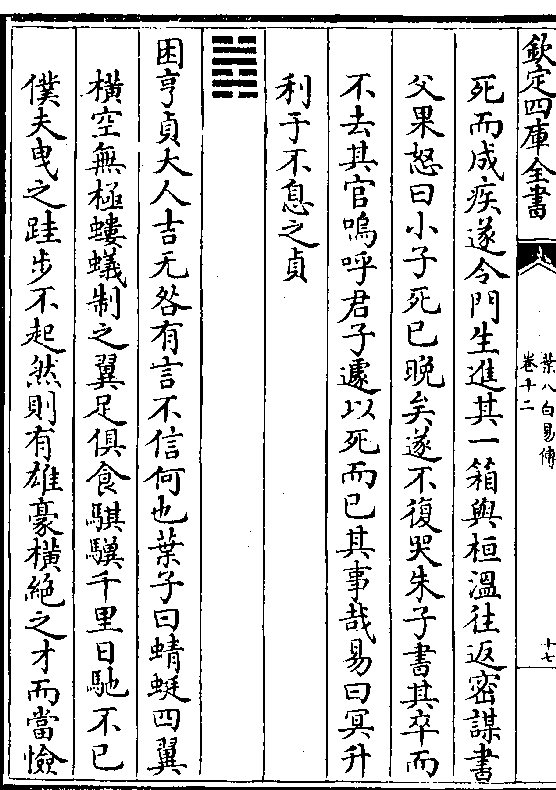 欽定四庫全書
葉八白易傳
卷十二
十七
死而成疾遂令門生進其一箱與桓溫往返密謀書
父果怒曰小子死已晚矣遂不復哭朱子書其卒而
不去其官嗚呼君子遽以死而已其事哉易曰冥升
利于不息之貞
䷮
困亨貞大人吉无咎有言不信何也葉子曰蜻蜓四翼
橫空無極螻蟻制之翼足俱食騏驥千里日馳不已
僕夫曳之跬步不起然則有雄豪橫絶之才而當憸